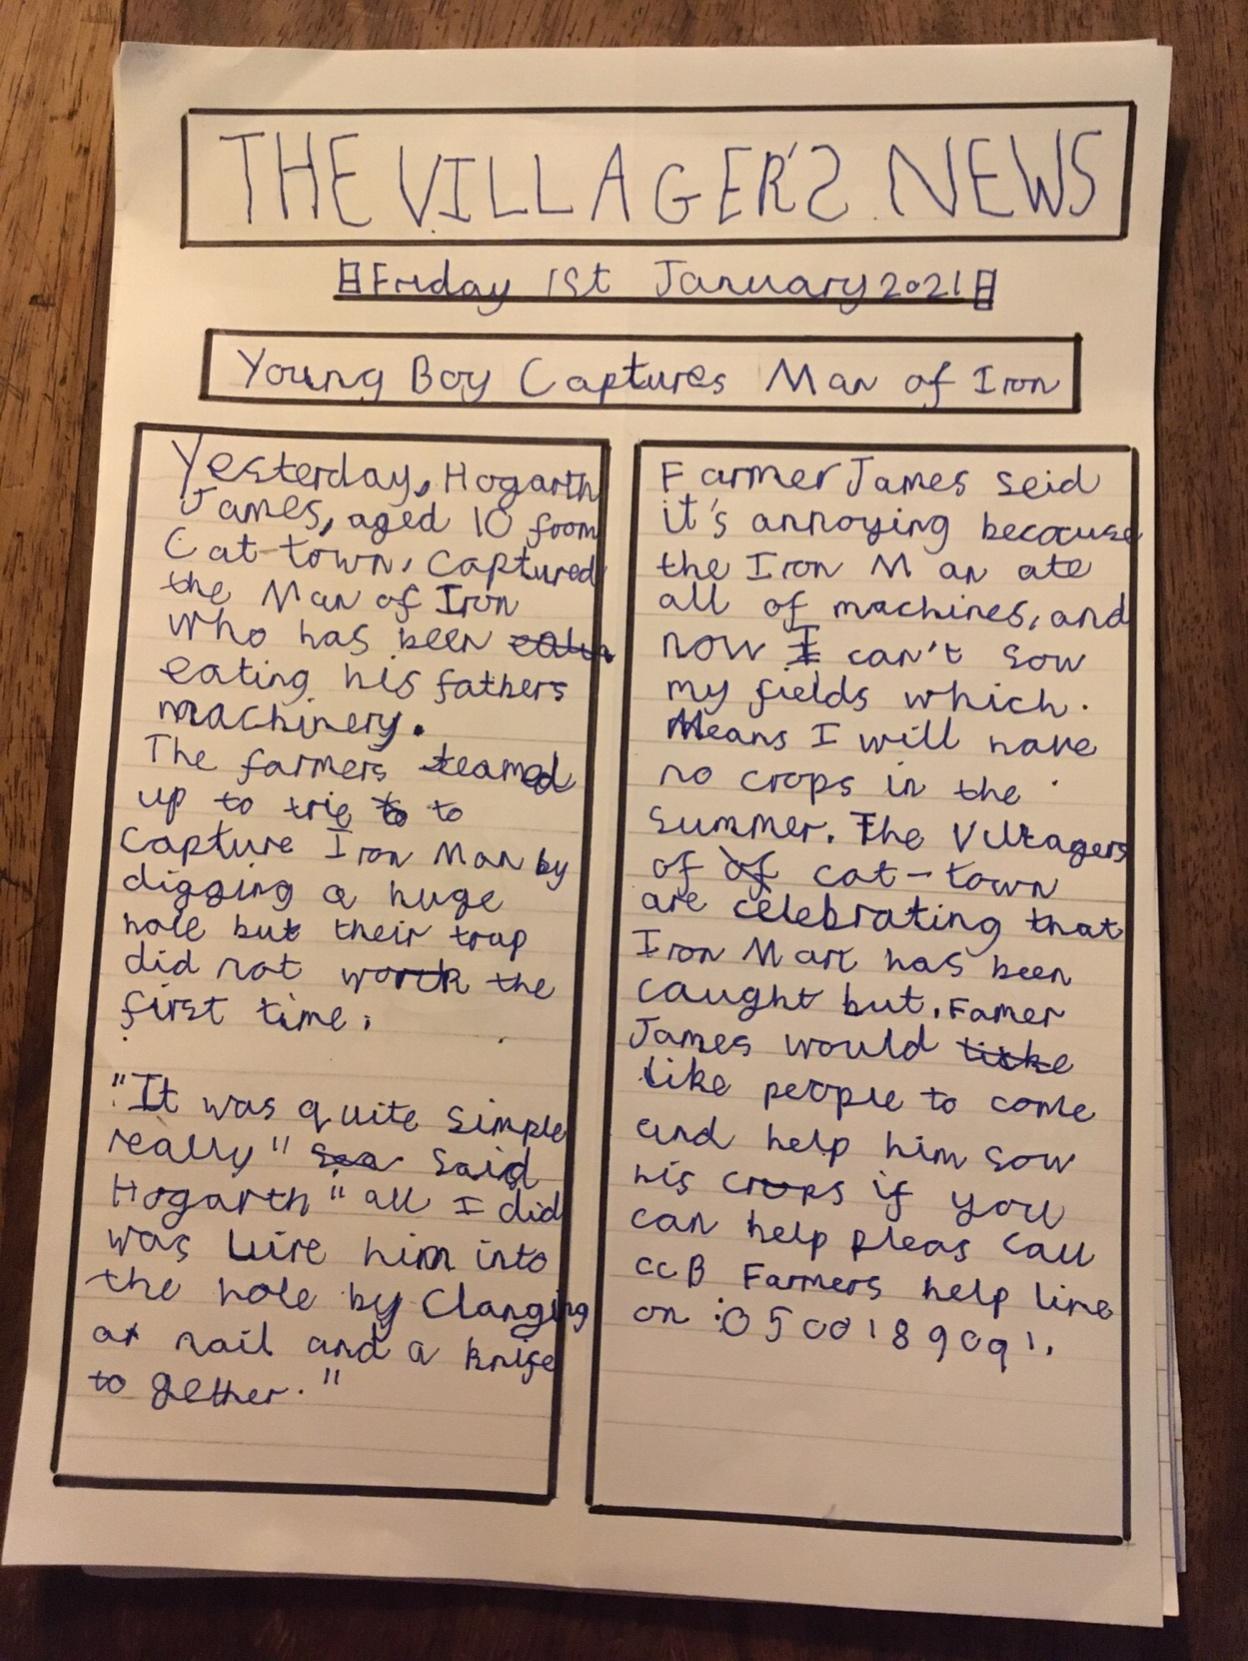 THE VILLAGER'S NEWS
Friday 1st January 2021
Young Boy Captures Man of Iron
Yesterday, Hogarth
James, aged 10 from
Cat-town, captured
the Man of Iron
who has been
eating his fathers
machinery.
The farmers teamed
up to trie to
capture Iron Man by
digging a huge
hole but their trap
did not worck the
first time.
"It was quite simple
really" said
Hogarth "all I did
was luire him into
the hole by Clanging
a nail and a knife
to gether."
Farmer James seid
it's annoying becacuse
the Iron Man ate
all of machines, and
now I can't sow
my fields which.
Means I will have
no crops in the
summer. The Villagers
of cat-town
are celebrating that
Iron Man has been
caught but. Famer
James would
like people to come
and help him sow
his crops if you
can help pleas call
ccB Farmers help line
on :0500189091.